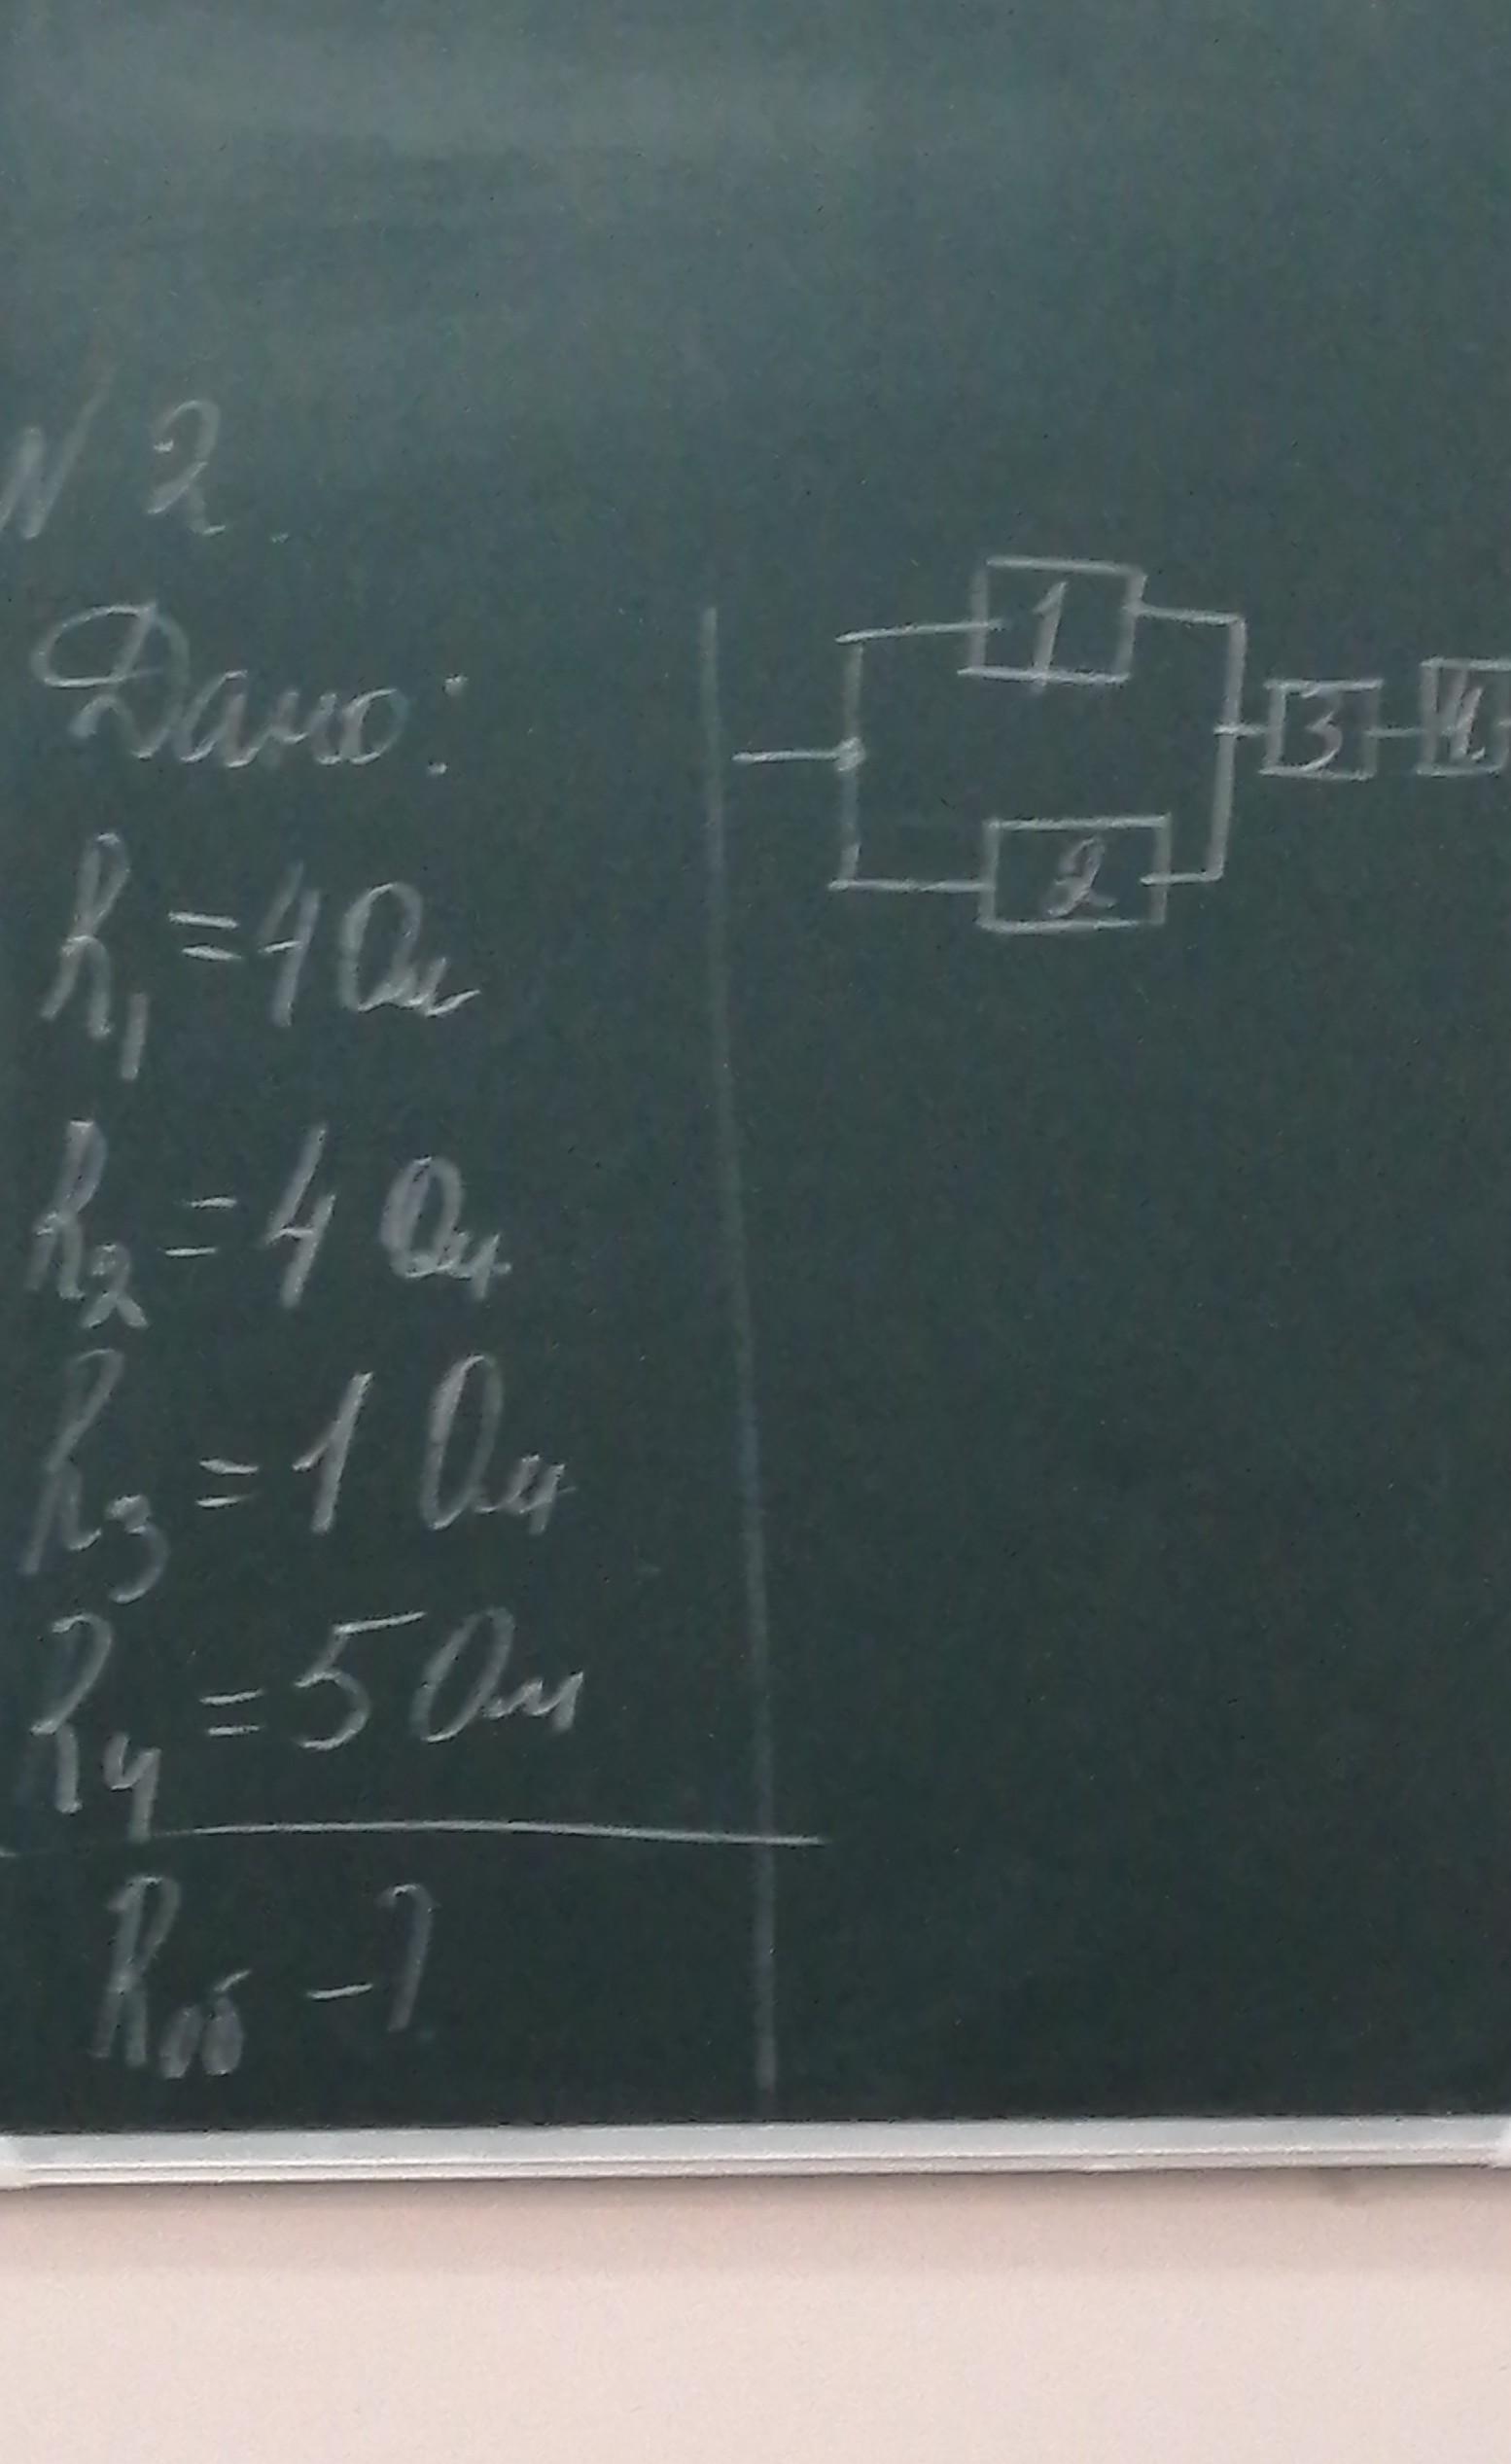 № 2.
Дано:
R₁ = 4 Ом
R₂ = 4 Ом
R₃ = 1 Ом
R₄ = 5 Ом
Rоб – ?
1
3
4
2